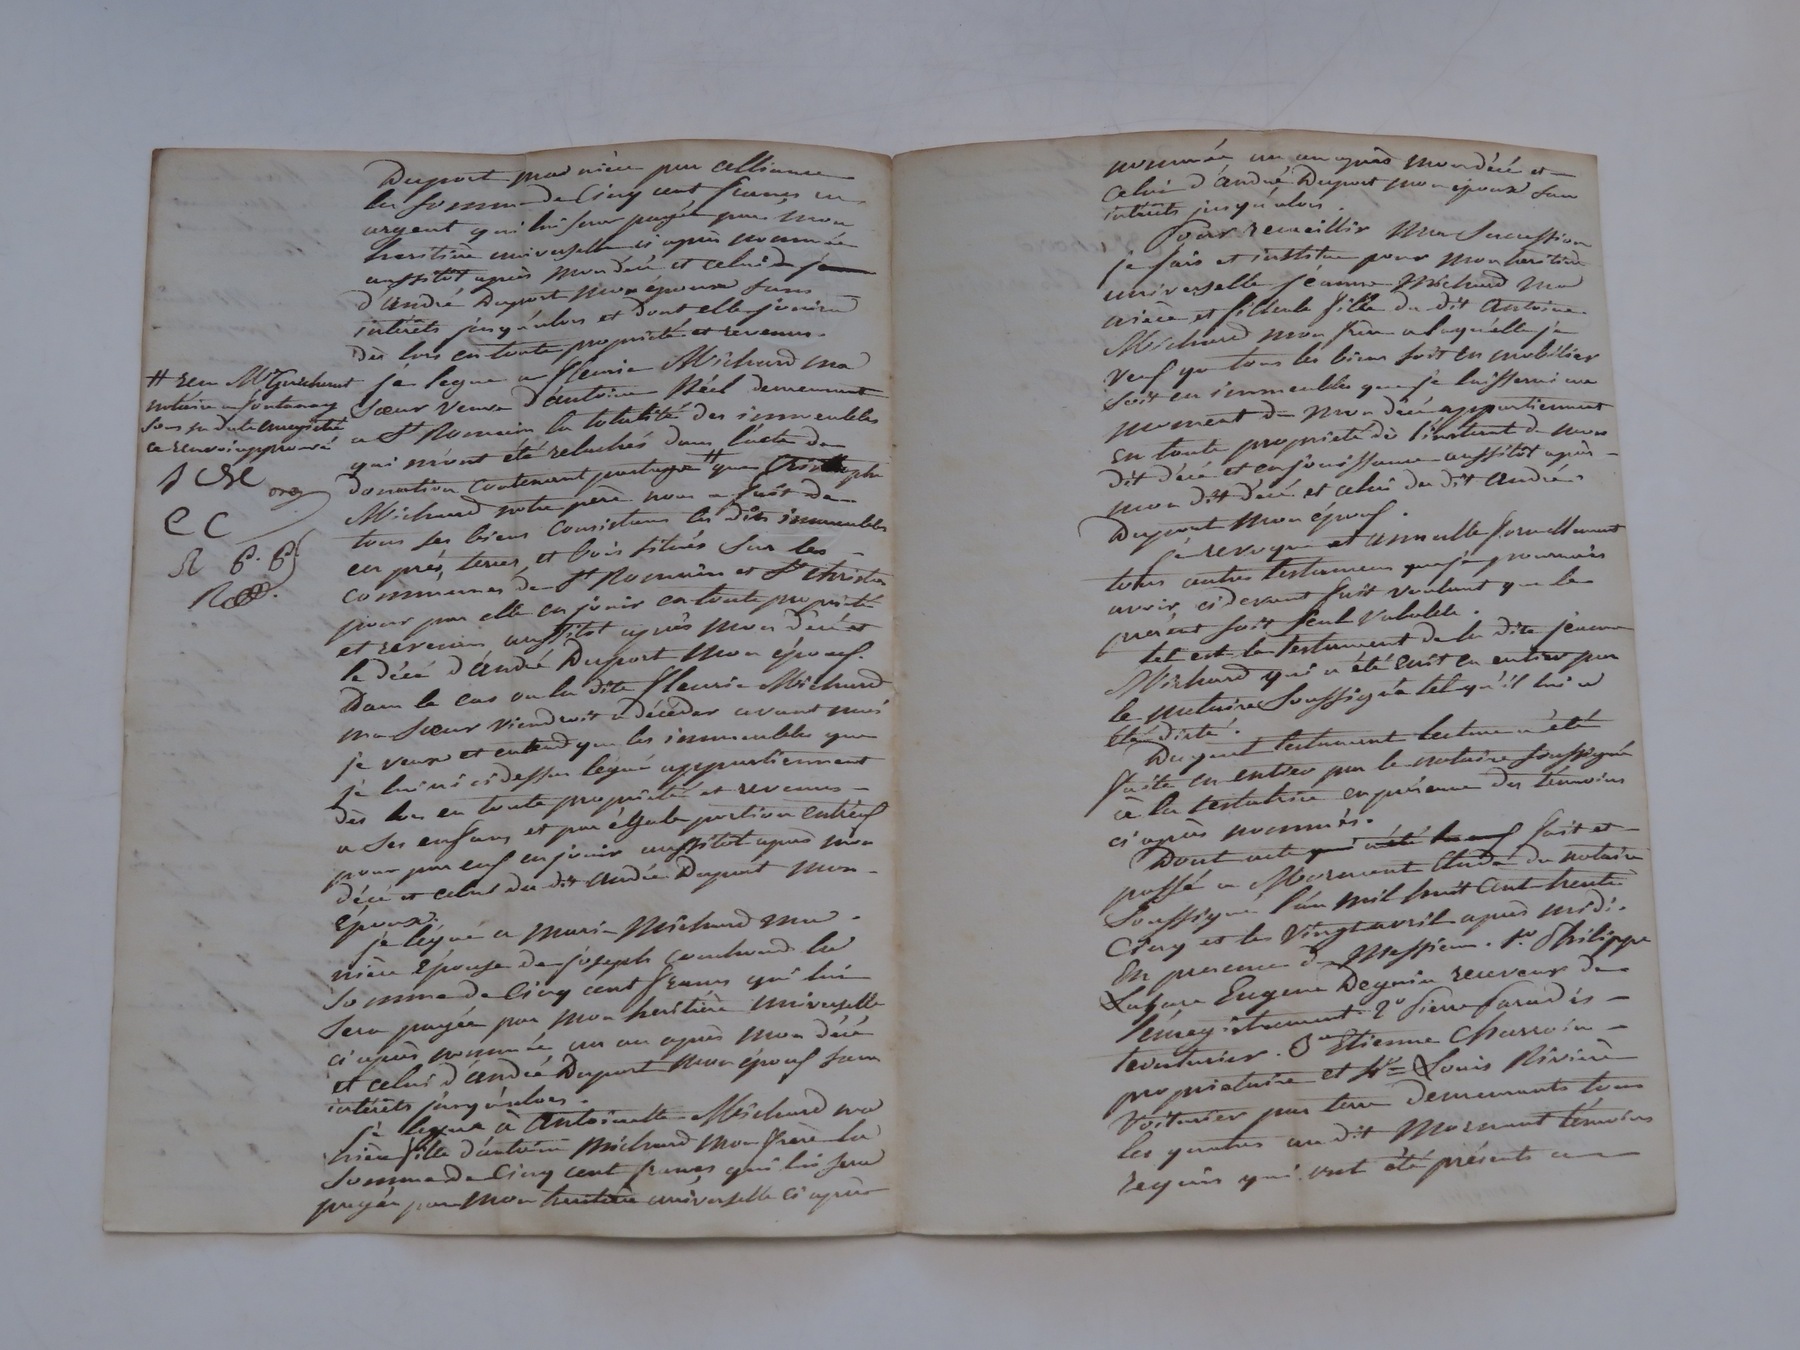 Duport ma nièce par alliance
la somme de Cinq cent francs en
argent qui lui sera payée par mon
héritière universelle ci après nommée
aussitôt après mon décé et celui de
d'andré Duport mon époux sans
intérêts jusqu'alors et dont elle jouira
dès lors en toute propriété et revenus.
je legue a fleurie Michard ma
Sœur veuve d'antoine Réel demeurant
a St Romain la totalité des immeubles
qui m'ont été relachés dans l'acte de
donation contenant partage # que
Michard notre père nous a fait de
tous ses biens consistans les dits immeubles
en prés, terres, et bois situés sur les
communes de St Romain et St christo
pour par elle en jouir en toute propriété
et revenus aussitôt après mon décé et
le décé d'andré Duport mon époux.
Dans le cas ou la dite fleurie Michard
ma Sœur viendroit a décéder avant moi
je veux et entend que les immeubles que
je lui ai cidessus légué appartiennent
dès lors en toute propriété et revenus
a ses enfans et par égale portion entr'eux
pour par eux en jouir aussitôt après mon
décé et celui du dit andré Duport mon
époux.
je légue a marie Michard ma
nièce épouse de joseph la
somme de Cinq cent francs qui lui
sera payée par mon héritière universelle
ci après nommée un an après mon décé
et celui d'andré Duport mon époux sans
intérêts jusqu'alors.
je legue à antoinette Michard ma
nièce fille d'antoine Michard mon frère la
somme de Cinq cent francs qui lui sera
payée par mon héritière universelle ci après
# reçu Me Guichard
notaire a fontanay
sous sa date enregistré
ce renvoi approuvé
nommée un an après mon décé et
celui d'andré Duport mon époux sans
intérêts jusqu'alors.
Pour recueillir ma Succession
je fais et institue pour mon héritière
universelle jéanne Michard ma
nièce et filleule fille du dit antoine
Michard mon frère a laquelle je
veux que tous les biens soit en mobilier
soit en immeubles que je laisserai au
moment de mon décé appartiennent
en toute propriété dès l'instant de mon
dit décé et en jouissance aussitôt après
mon dit décé et celui du dit andré
Duport mon époux.
je revoque et annulle formellement
tous autres testamens que je pourrois
avoir cidevant fait voulant que le
présent soit seul valable.
tel est le testament de la dite jeanne
Michard qui a été écrit en entier par
le notaire soussigné tel qu'il lui a
été dicté.
Duquel testament lecture a été
faite en entier par le notaire soussigné
à la testatrice en présence des témoins
ci après nommés.
Dont acte fait et
passé a Mornant Etude du notaire
soussigné l'an mil huit cent trente
Cinq et le vingt avril après midi.
En présence de Messieurs. 1o Philippe
Lazare Eugène Deguin receveur de
l'enregistrement. 2o pierre
teinturier. 3o Etienne Charroin
propriétaire et 4o Louis Rivière
Voiturier par terre demeurants tous
les quatres au dit Mornant témoins
requis qui ont été présents a